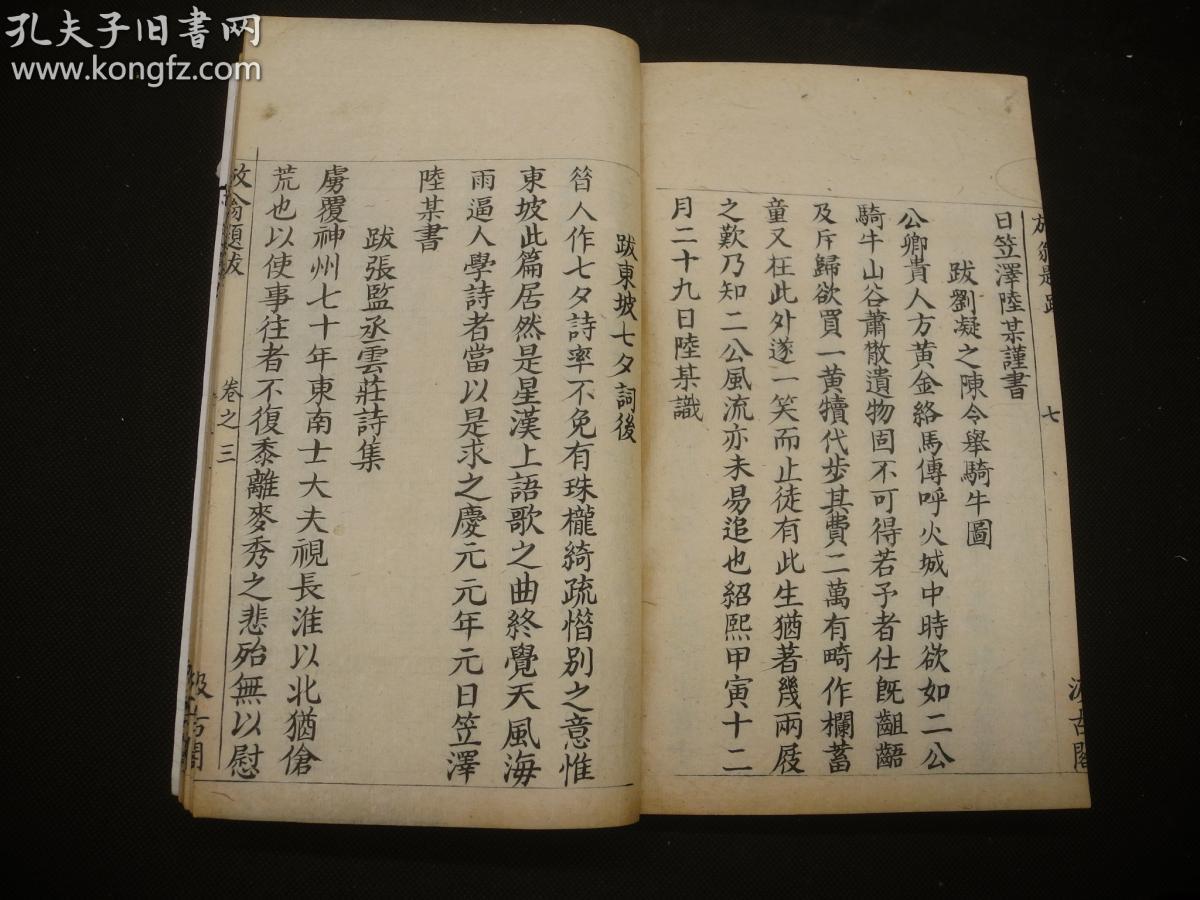 孔夫子旧书网
www.kongfz.com
七
汲古閣
日笠澤陸某謹書
跋劉凝之陳令舉騎牛圖
公卿貴人方黃金絡馬傳呼火城中時欲如二公
騎牛山谷蕭散遺物固不可得若予者仕旣齟齬
及斥歸欲買一黃犢代步其費二萬有畸作欄蓄
童又在此外遂一笑而止徒有此生猶著幾兩屐
之歎乃知二公風流亦未易追也紹熙甲寅十二
月二十九日陸某識
跋東坡七夕詞後
昝人作七夕詩率不免有珠櫳綺疏惜別之意惟
東坡此篇居然是星漢上語歌之曲終覺天風海
雨逼人學詩者當以是求之慶元元年元日笠澤
陸某書
跋張監丞雲莊詩集
虜覆神州七十年東南士大夫視長淮以北猶傖
荒也以使事往者不復黍離麥秀之悲殆無以慰
放翁題跋
卷之三
汲古閣